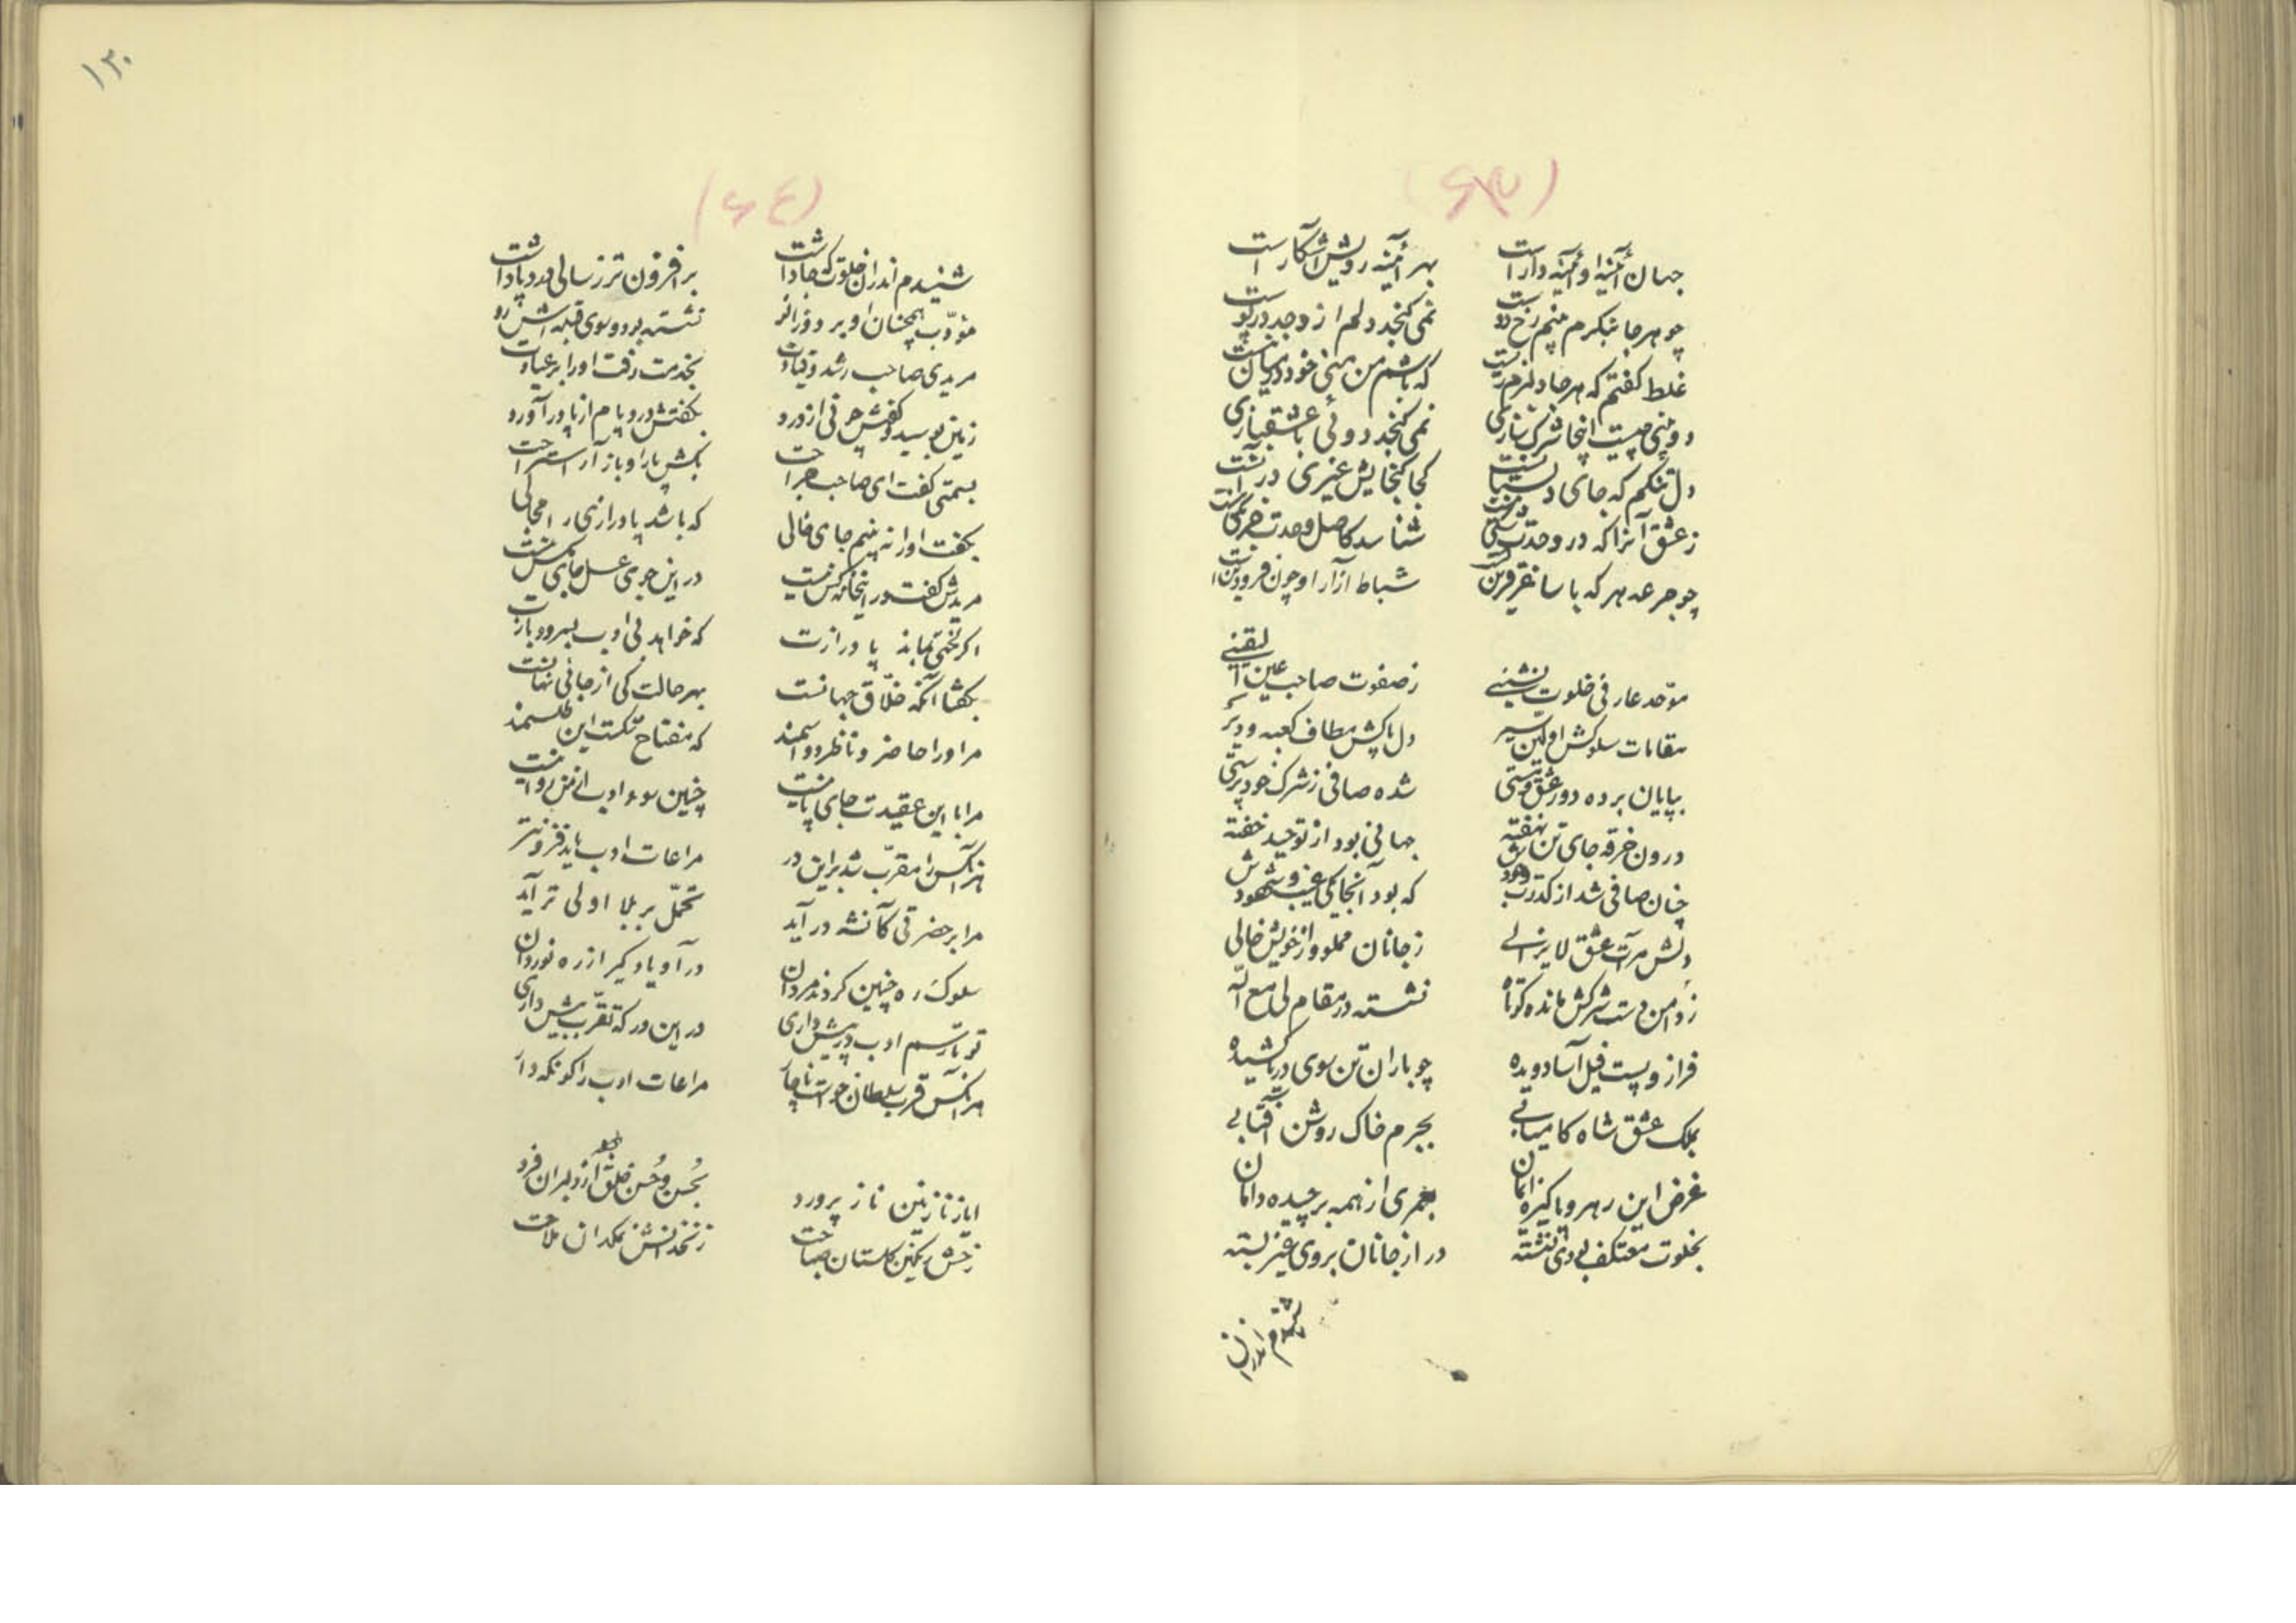 (۶۳)
جهان آئینه او آئینه دار است بهر آئینه رویش آشکار است
چو هر جا بنگرم بینم رخ دوست نمی گنجد دلم از وجد در پوست
غلط گفتم که هر جا دلبرم نیست که باشم من منی خود در میان نیست
دوئی چیست اینجا شرک بازی نمی گنجد دوئی با عشقبازی
دل تنگم که جای دلستانست کجا گنجایش غیری در آنست
ز عشق آنرا که در وحدت شناسد کاصل وحدت
چو جرعه هر که با ساغر قرین شباط آزار او چون فرودین
موحد عارفی خلوت نشینی ز صفوت صاحب عین الیقینی
مقامات سلوکش اولین سیر دل پاکش مطاف کعبه و دیر
بپایان برده دور عشق و مستی شده صافی ز شرک خود پرستی
درون خرقه جای تن نهفته جهانی بود از توحید خفته
چنان صافی شد از کدرت وجودش که بود آنجا یکی غیب و شهودش
دلش مرآت عشق لا یزالی ز جانان مملو و از خویش خالی
ز دامن دست شرکش مانده کوتاه نشسته در مقام لی مع الله
فراز و پست فیل آسا دویده چو باران تن سوی دریا کشیده
بملک عشق شاه کامیابی بجرم خاک روشن آفتابی
غرض این رهرو پاکیزه ایمان بعمری از همه برچیده دامان
بخلوت معتکف بی دی نشسته در از جانان بروی غیر بسته
شنیدم اندران
۱۳۰
(۶۴)
شنیدم اندران خلوت که جا داشت بر افزون تر ز سالی درد پا داشت
مؤدب همچنان او بر دو زانو نشسته بود و سوی قبله اش رو
مریدی صاحب رشد و قیادت بخدمت رفت او را بر عیادت
زمین بوسید و کفش حرفی از درد بگفتش درد پایم از پا در آورد
بسمتی گفت ای صاحب جراحت بکش پا را و باز آر استراحت
بگفت او را نه بینم جای خالی که باشد پا درازی را مجالی
مریدش گفت در اینجا که کس نیست در این جوی عسل جای مگس نیست
اگر لختی بماند پا درازت که خواهد بی ادب بسرود بازت
بگفتا آنکه خلاق جهانست بهر حالت کی از جائی نهانست
مرا او را حاضر و ناظر دو اسمند که مفتاح حکمت این طلسمند
مرا با این عقیدت جای پا نیست چنین سوء ادب از من روا نیست
هر آنکس را مقرب شد بر این در مراعات ادب باید فزونتر
مرا بر حضرتی کآتشه در آید تحمل بر بلا اولی تر آید
سلوک ره چنین کردند مردان در آ و یاد گیر از ره نوردان
تو تا رسم ادب در پیش داری در این درگه تقرب بیش داری
هر آنکس قرب سلطان جست ناچار مراعات ادب را گو نگه دار
ایاز نازنین ناز پرورد بحسن و حسن خلق از دلبران فرد
رخش رنگین گلستان صباحت زنخدانش نمکدان ملاحت